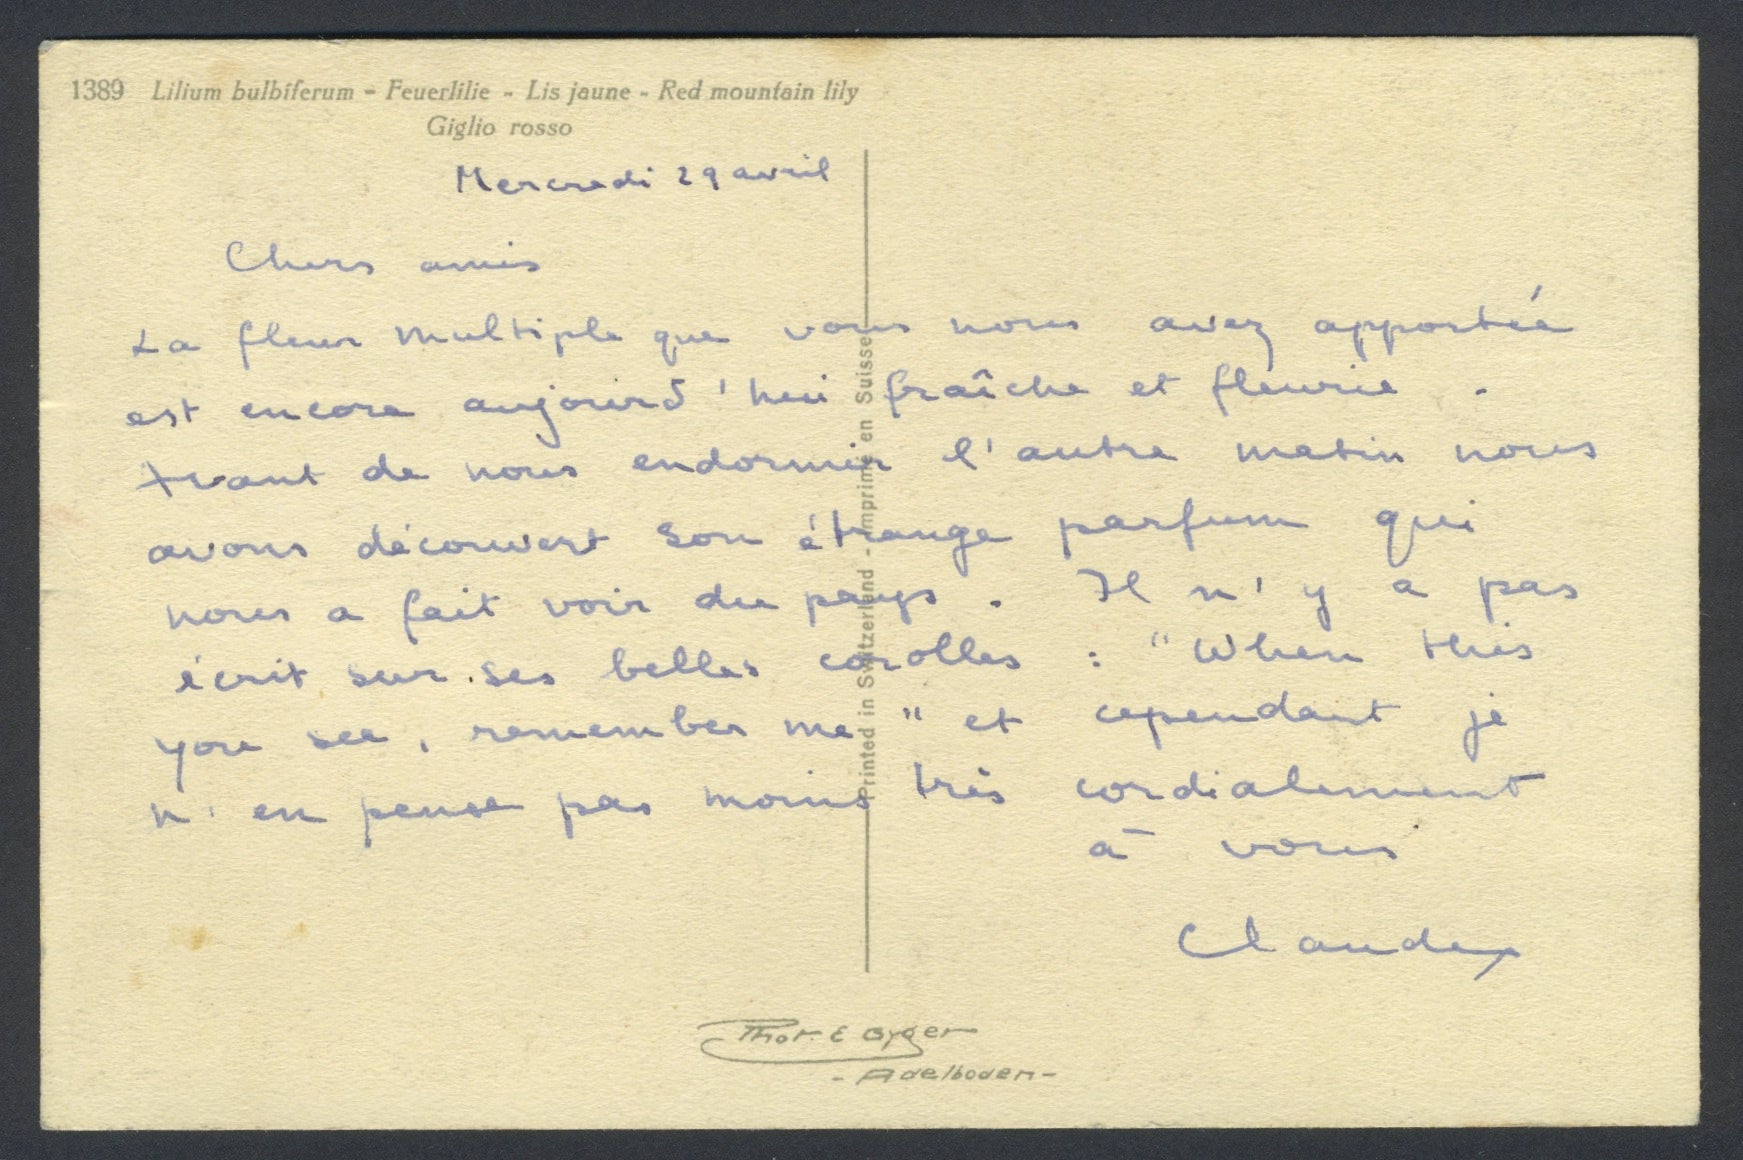 1389 Lilium bulbiferum - Feuerlilie - Lis jaune - Red mountain lily
Giglio rosso
Mercredi 29 avril
Chers amis
La fleur multiple que vous nous avez apportée
est encore aujourd'hui fraîche et fleurie.
Avant de nous endormir l'autre matin nous
avons découvert son étrange parfum qui
nous a fait voir du pays. Il n'y a pas
écrit sur ses belles corolles : "When this
you see, remember me" et cependant je
n'en pense pas moins très cordialement
à vous
Claude
Printed in Switzerland - Imprimé en Suisse
Phot. E Gyger
- Adelboden -